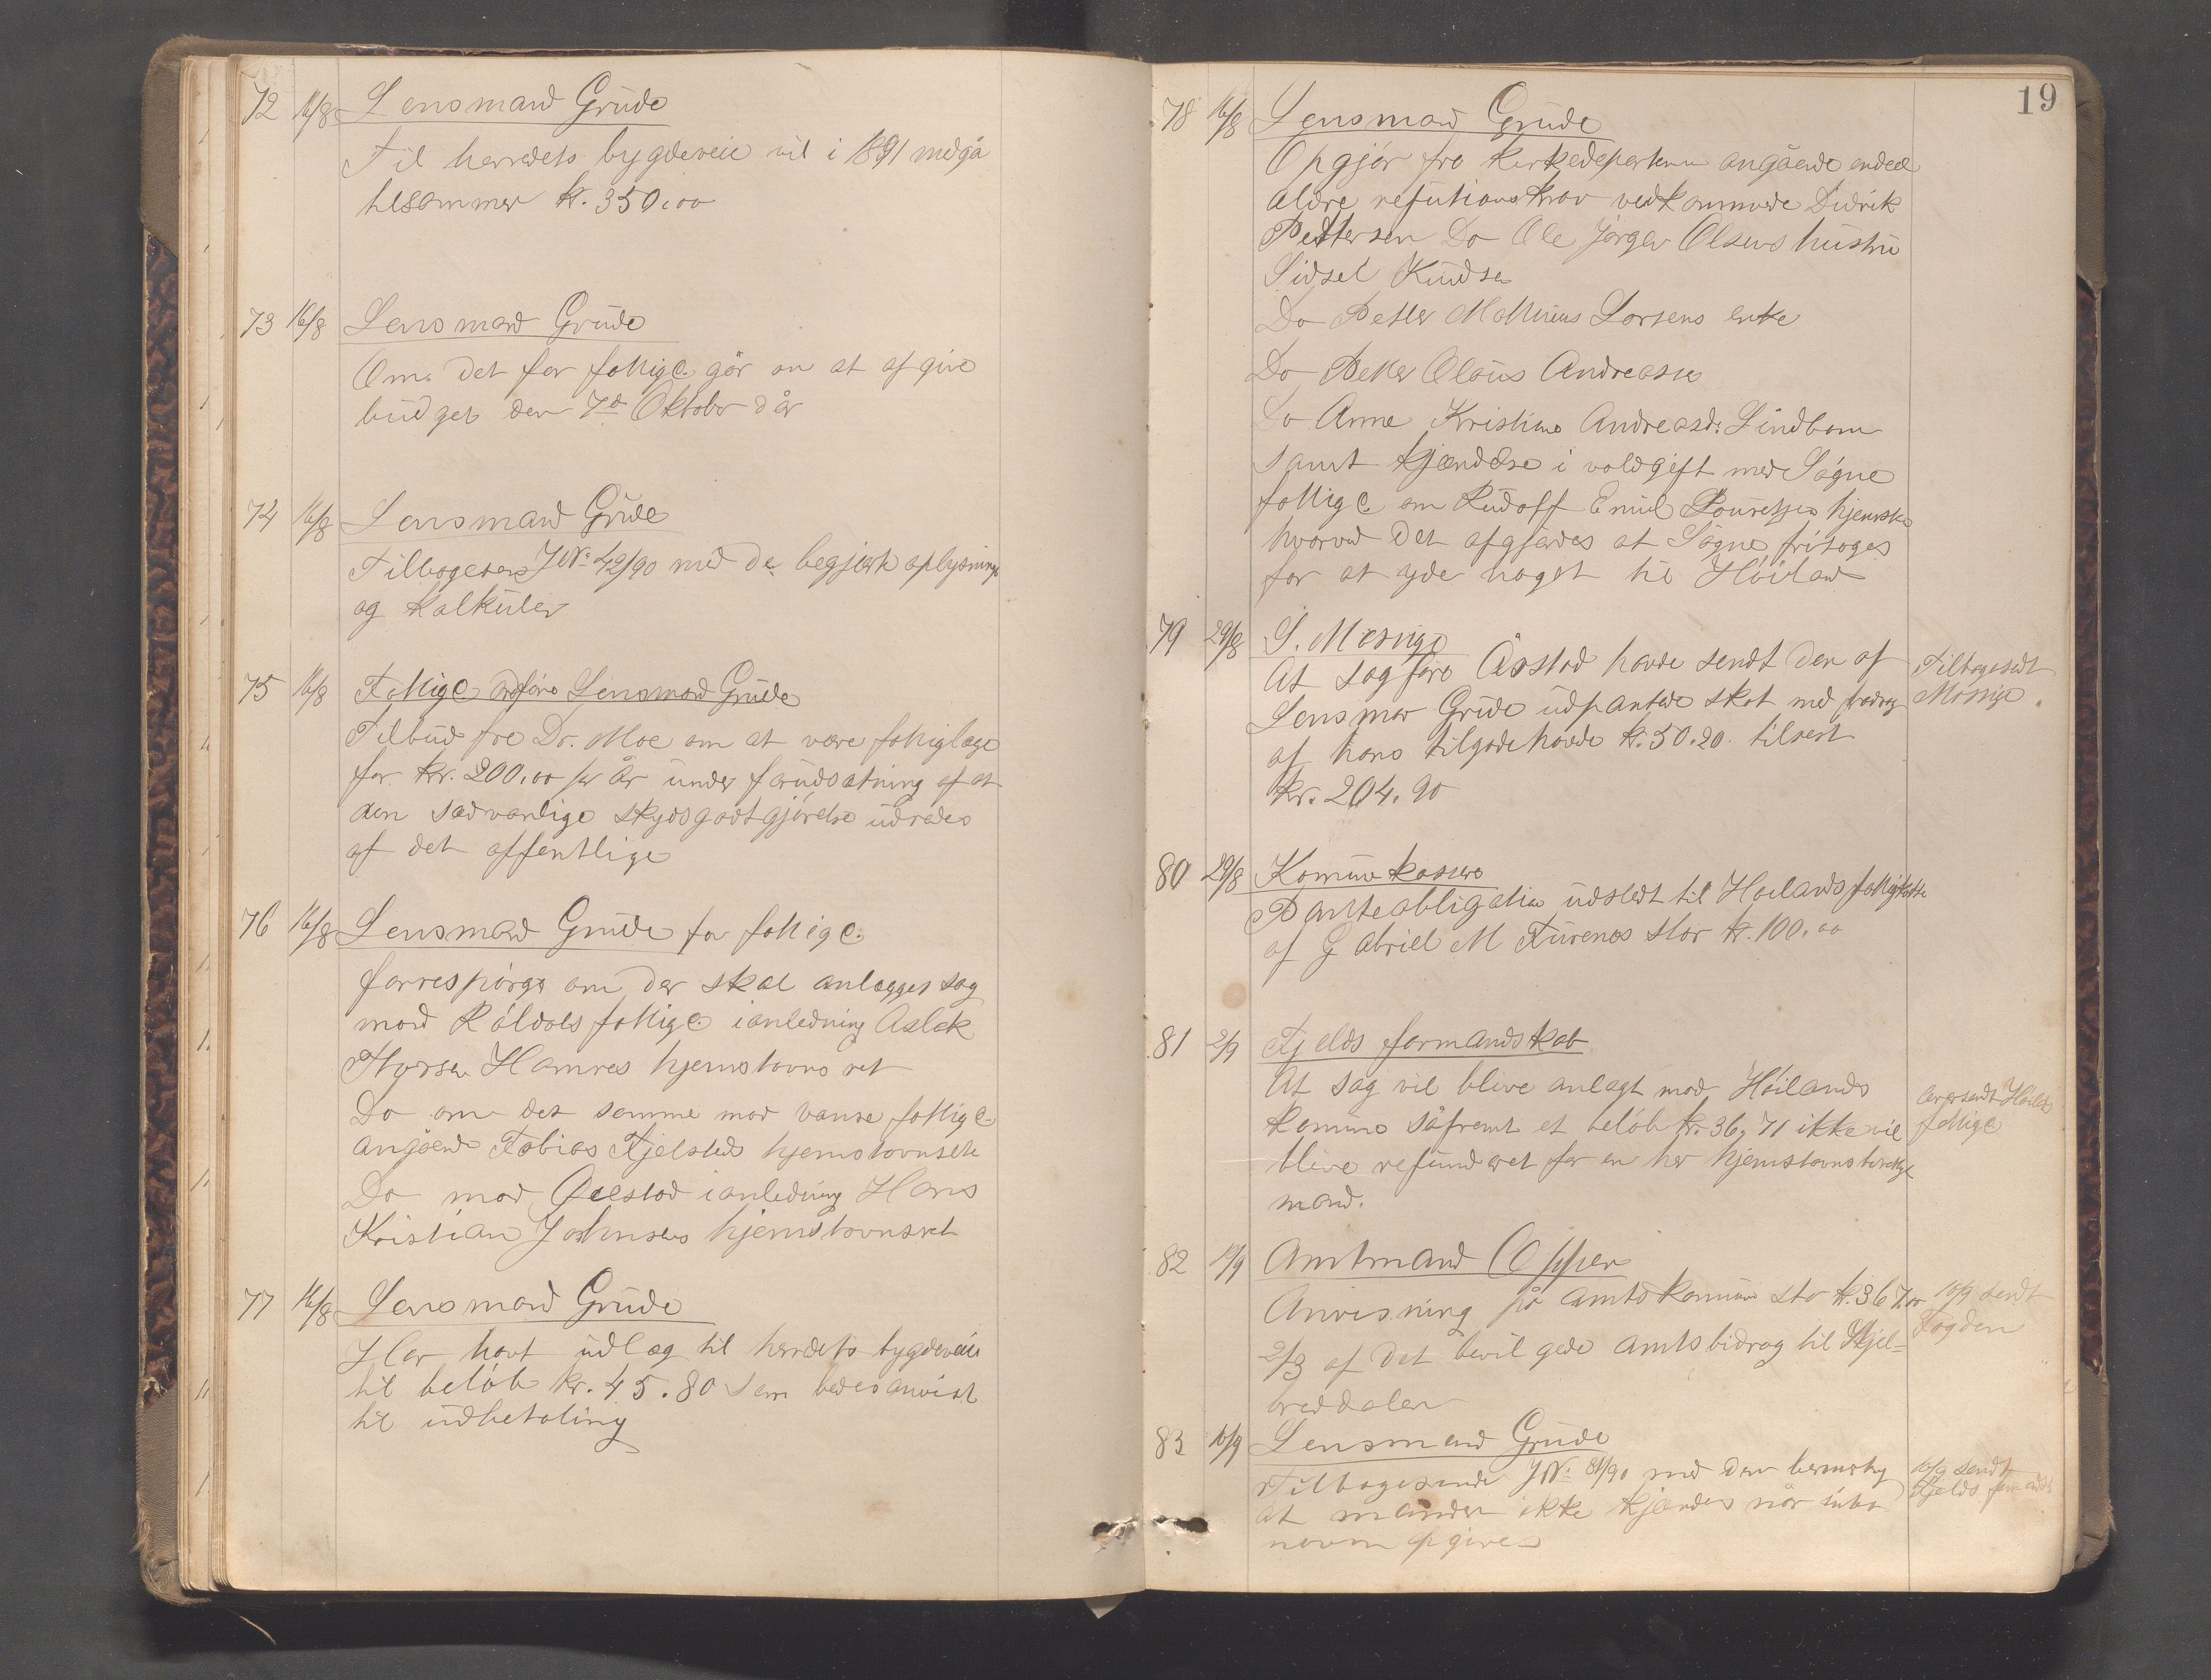 72 16/8 Lensmand Grude
Til herredets bygdeveie vil i 1891 medgå
tilsammen kr. 350,00
73 16/8 Lensmand Grude
Om det for fattigC. går an at afgive
budget den 7de Oktober d år
74 16/8 Lensmand Grude
Tilbagesend JNo 42/90 med de begjærte oplysninge
og kalküler
75 16/8 FattigC. ordfører Lensmand Grude
Tilbud fra Dr. Moe om at være fattiglæge
for kr. 200,00 pr år under forudsætning af at
den sædvanlige skydsgodtgjörelse udredes
af det offentlige
76 16/8 Lensmand Grude for fattigC.
forrespörger om der skal anlægges sag
mod Röldals fattigC. i anledning Aslak
Hamres hjemstavns ret
Do om det samme mod Vanse fattigC.
angående Tobias Fjelsteds hjemstavnsret
Do mod i anledning Hans
Kristian Johnsens hjemstavnsret
77 16/8 Lensmand Grude
Har havt udlæg til herredets bygdeveie
til beløb kr. 45.80 som bedes anvist
til udbetaling
19
78 16/8 Lensmand Grude
Opgjör fra Kirkedepartem angående endeel
ældre refutionskrav vedkommende Didrik
Pettersen Do Ole Jörgen Olsens hustru
Sidsel Knudsen
Do Petter Mathias Larsens enke
Do Peter Olaus Andreasen
Do Anne Kristine Andreasd. Lindbom
samt kjendelse i voldgift med Sögne
fattigC om Rudolf Emil hjemsted
hvorved det afgjördes at Sögne fritages
for at yde noget til Höiland
79 29/8 S. Mossige
At sagförer Åsstad havde sendt den af
Lensman Grude udpantede skat med fradrag
af hans tilgodehavde kr. 50.20. tilrest
kr. 204.90
Tilbagesendt
Mossige.
80 29/8 Komunekassere
Panteobligation udstedt til Höilands fattigkasse
af Gabriel M Furenes stor kr. 100,00
81 2/9 Fjelds formandskab
At sag vil blive anlagt mod Höilands
komune såfremt et belöb kr. 36,71 ikke vil
blive refunderet for en her hjemstavnsberettiget
mand.
oversendt Höilds
fattigC
82 10/9 Amtmand Oppen
Anvisning på amtskomunen stor kr. 367,00
2/3 af det bevilgede amtsbidrag til Skjel=
breddalen
10/9 sendt
Fogden
83 10/9 Lensmand Grude
Tilbagesende JNo. 81/90 med den bemerkn
at manden ikke kjendes når intet
navn opgives
10/9 sendt
Fjelds formandsk